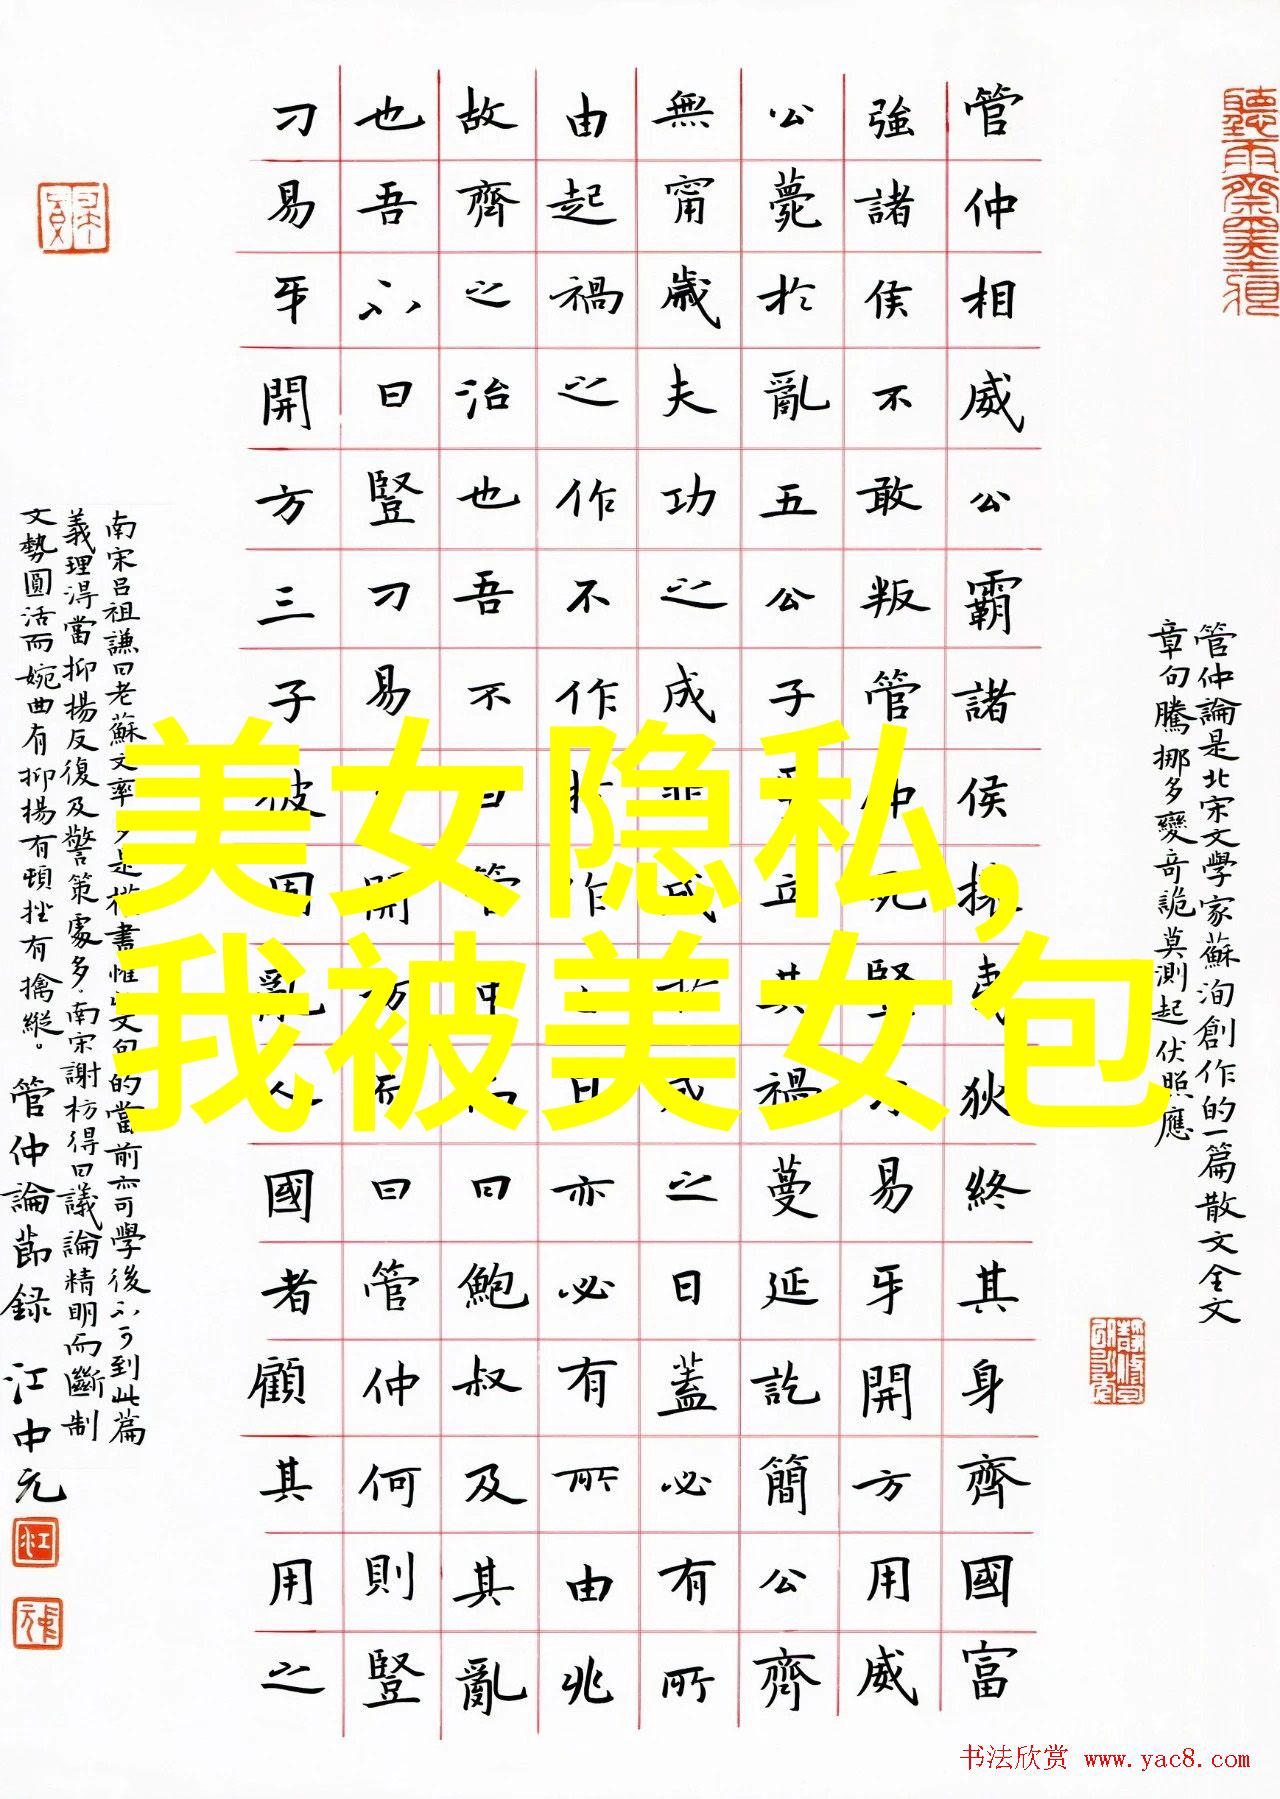 管仲論是北宋文學家蘇洵創作的一篇散文全文
章句騰挪多變奇詭莫測起伏照應
管仲相威公霸諸侯攘夷狄終其身齊國富
強諸侯不敢叛管仲死豎刁易牙開方用威
公薨於亂五公子爭立其禍蔓延訖簡公齊
無甯歲夫功之成非成於成之日蓋必有所
由起禍之作不作於作之日亦必有所由兆
故齊之治也吾不曰管仲而曰鮑叔及其亂
也吾不曰豎刁易牙開方而曰管仲何則豎
刁易牙開方三子彼固亂人國者顧其用之
南宋呂祖謙曰老蘇文率多是權書惟此文句的當前亦可學後不可到此篇
義理淂當抑揚反復及警策處多.南宋謝枋得曰議論精明而斷制
文勢圓活而婉曲有抑揚有頓挫有擒縱。管仲論節錄 江中元
美女隐私,
我被美女包
书法欣赏 www.yac8.com